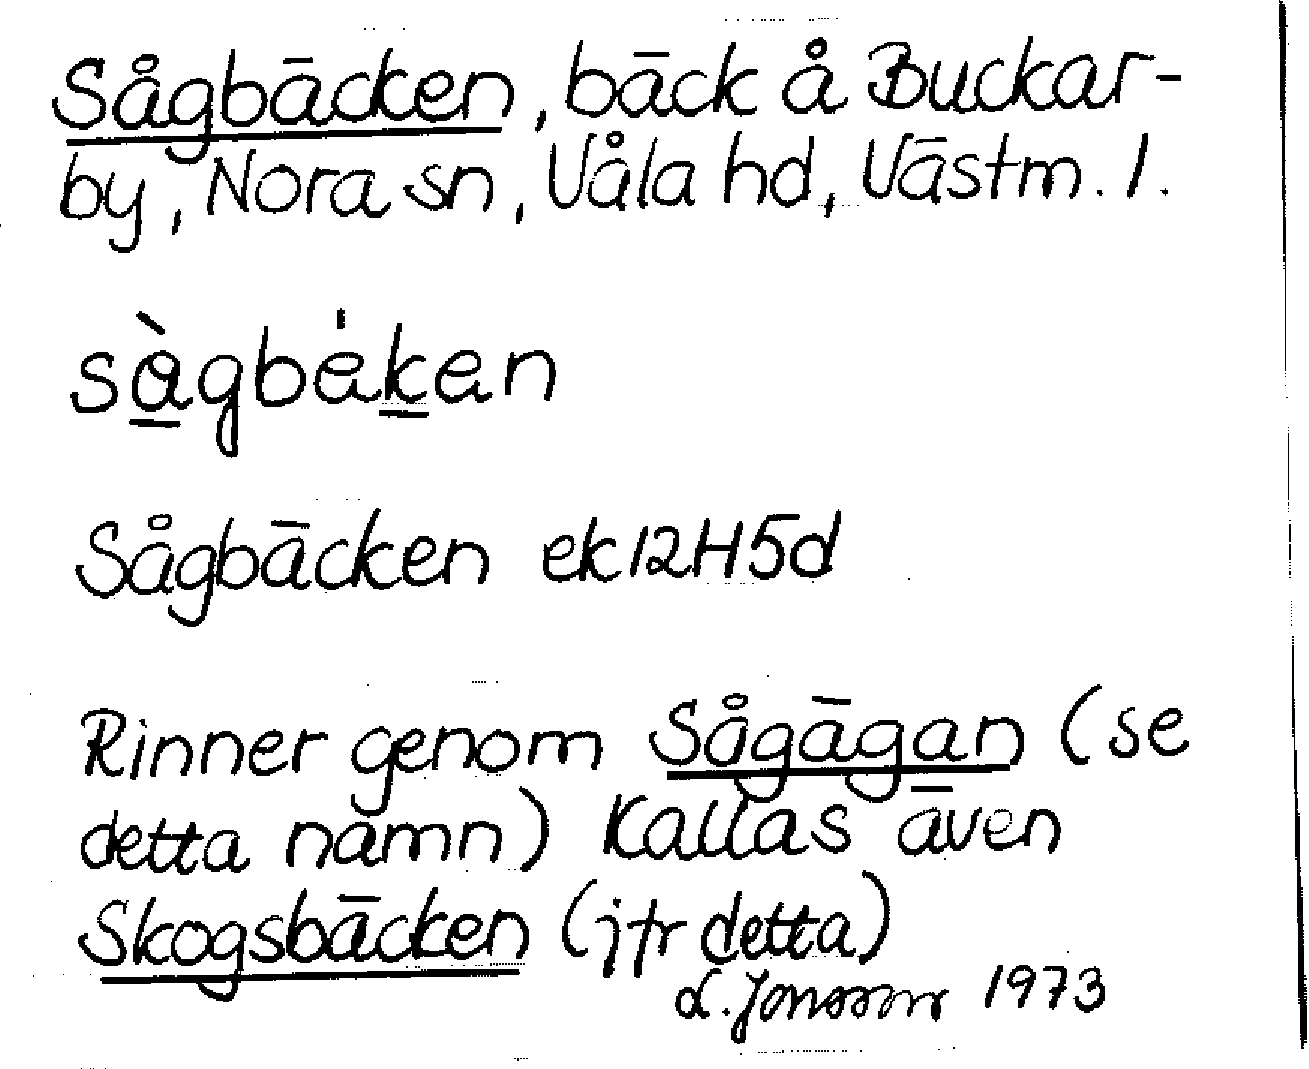 Sågbäcken, bäck å Buckar-
by, Nora sn, Våla hd, Västm. l.
sàgbáken
Sågbäcken ek12H5d
Rinner genom Sågägan (se
detta namn) Kallas även
Skogsbäcken (jfr detta)
L. Jonsson 1973